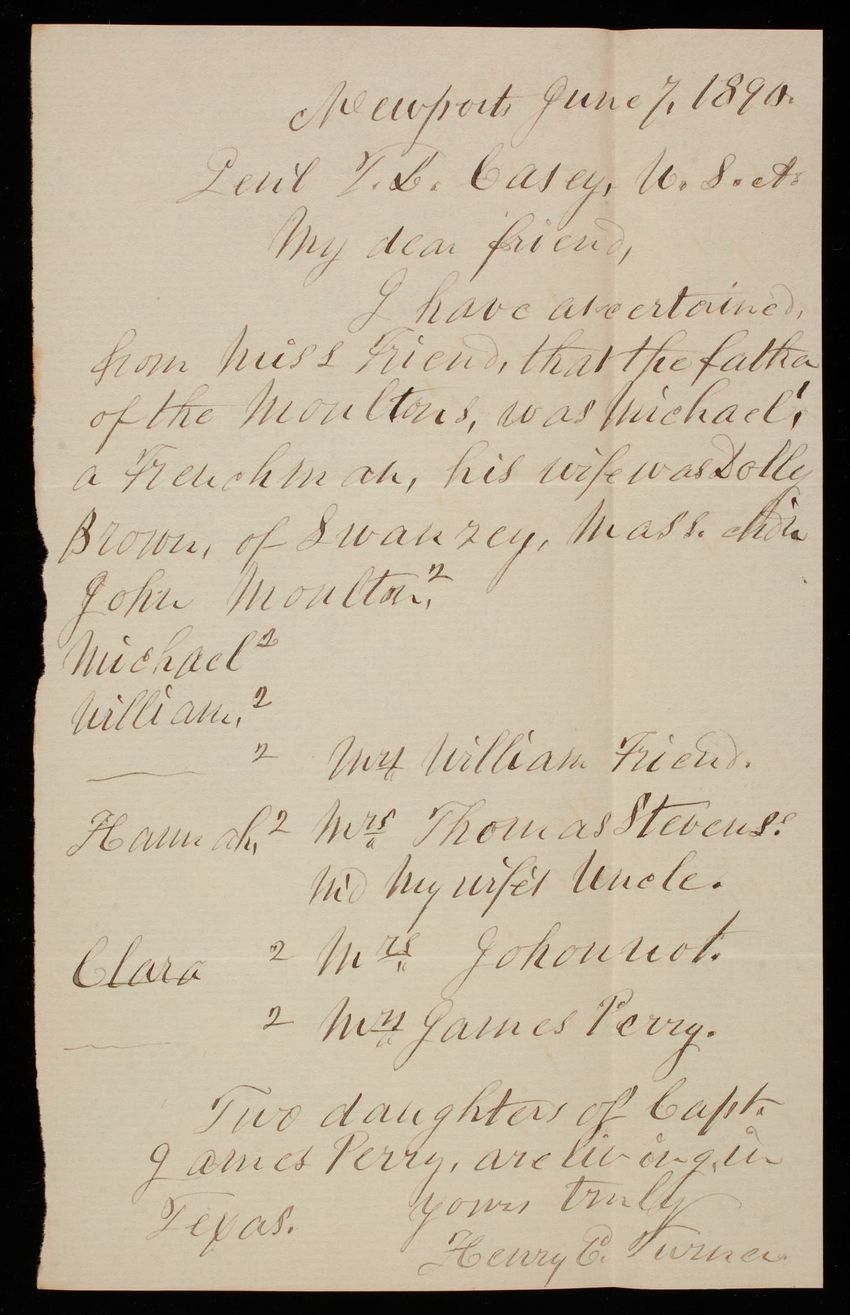 Newport June 7, 1890.
Genl T. L. Casey, U. S. A.
My dear friend,
I have ascertained,
from Miss Friend, that the father
of the Moultons, was Michael,1
a Frenchman, his wife was Dolly
Brown, of Swanzey, Mass.
John Moulton,2
Michael 2
William,2
2 Mrs William Friend.
Hannah,2 Mrs Thomas Stevens.
My wife's Uncle.
Clara 2 Mrs Johonnot.
2 Mrs James Perry.
Two daughters of Capt.
James Perry, are living in
Texas. yours truly
Henry E. Turner